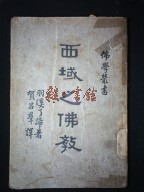 佛學叢書
西域之佛教
羽溪了諦著
賀昌羣譯